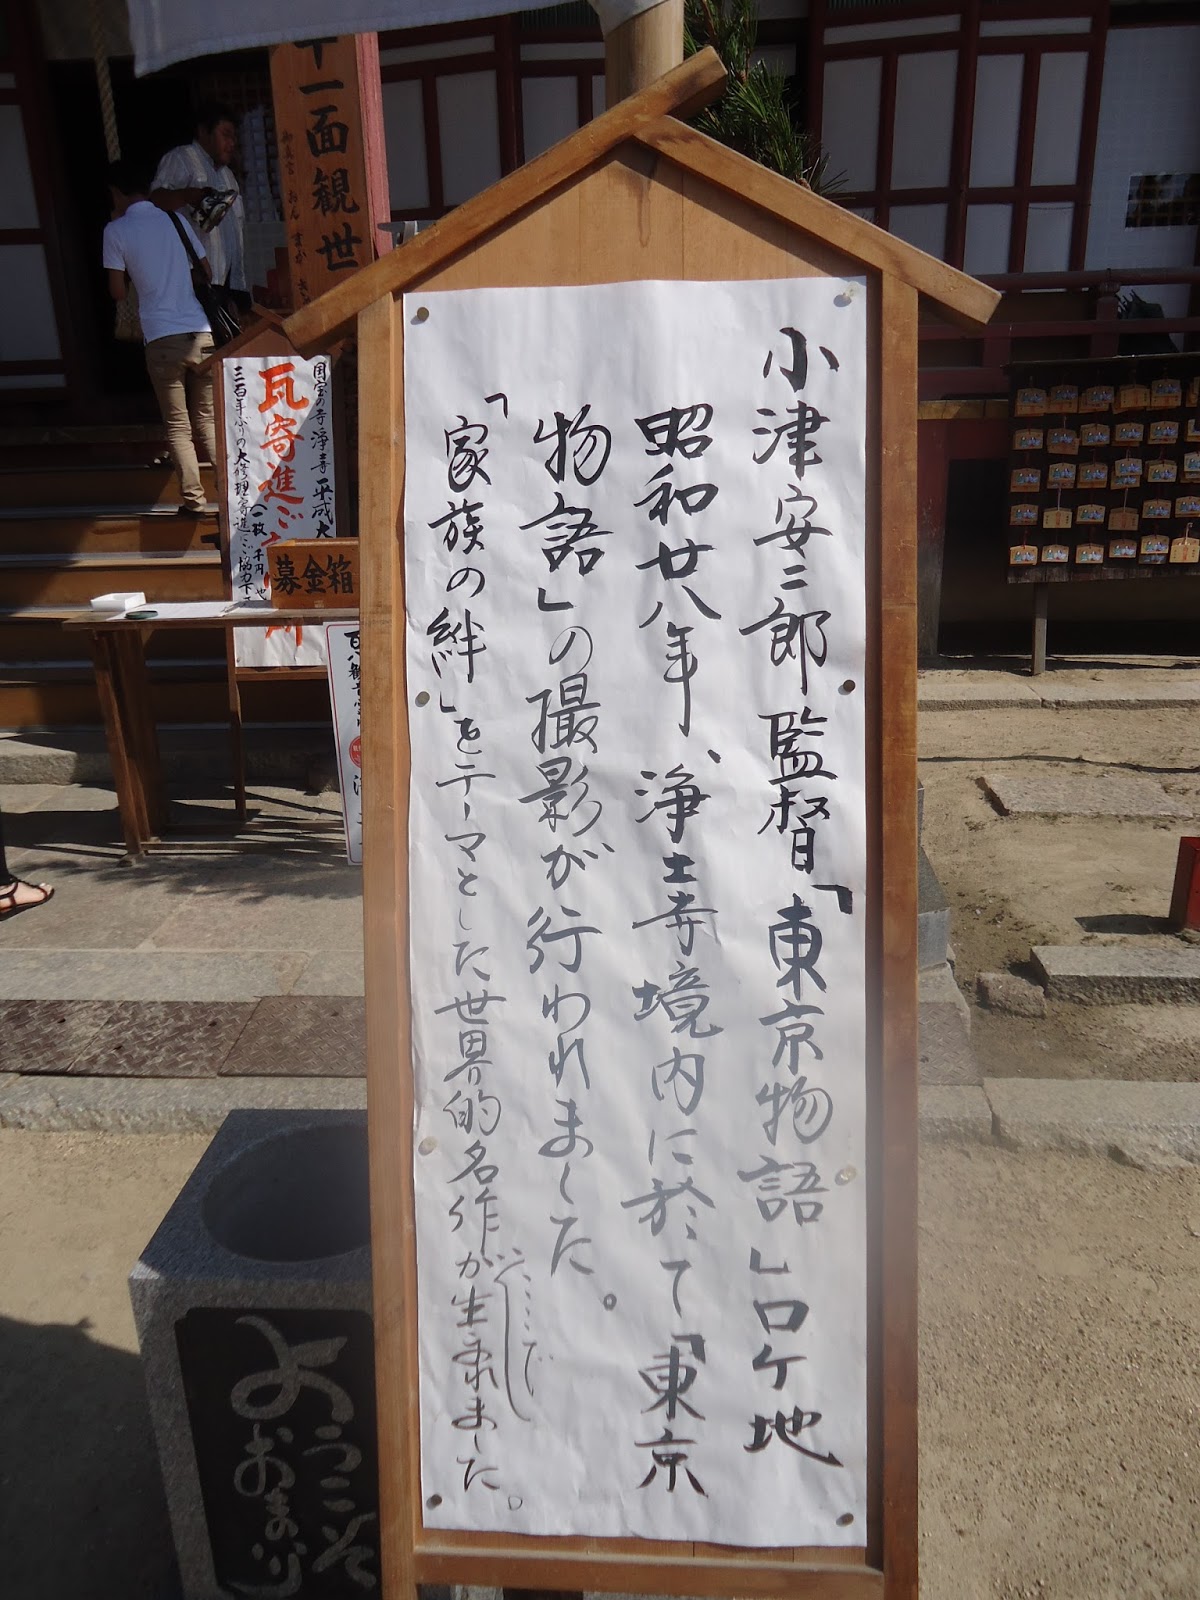 小津安二郎監督「東京物語」ロケ地
昭和廿八年、浄土寺境内に於て「東京
物語」の撮影が行われました。
「家族の絆」をテーマとした世界的名作が生まれました。
十一面観世
国宝の寺浄
瓦寄進ご
三百年ぶりの大修理寄進ご協力下
募金箱
ようこそ
おまいり